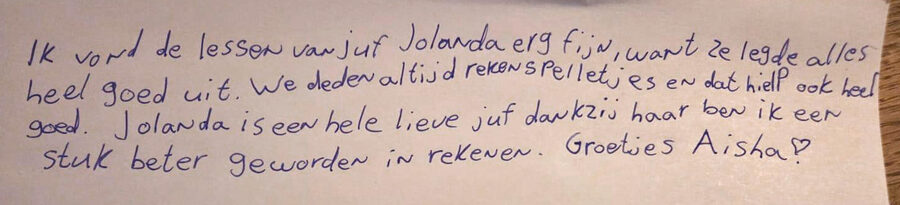 Ik vond de lessen van juf Jolanda erg fijn, want ze legde alles
heel goed uit. We deden altijd rekenspelletjes en dat hielp ook heel
goed. Jolanda is een hele lieve juf dankzij haar ben ik een
stuk beter geworden in rekenen. Groetjes Aisha♡